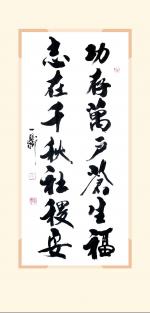 功存萬戶蒼生福
志在千秋社稷安